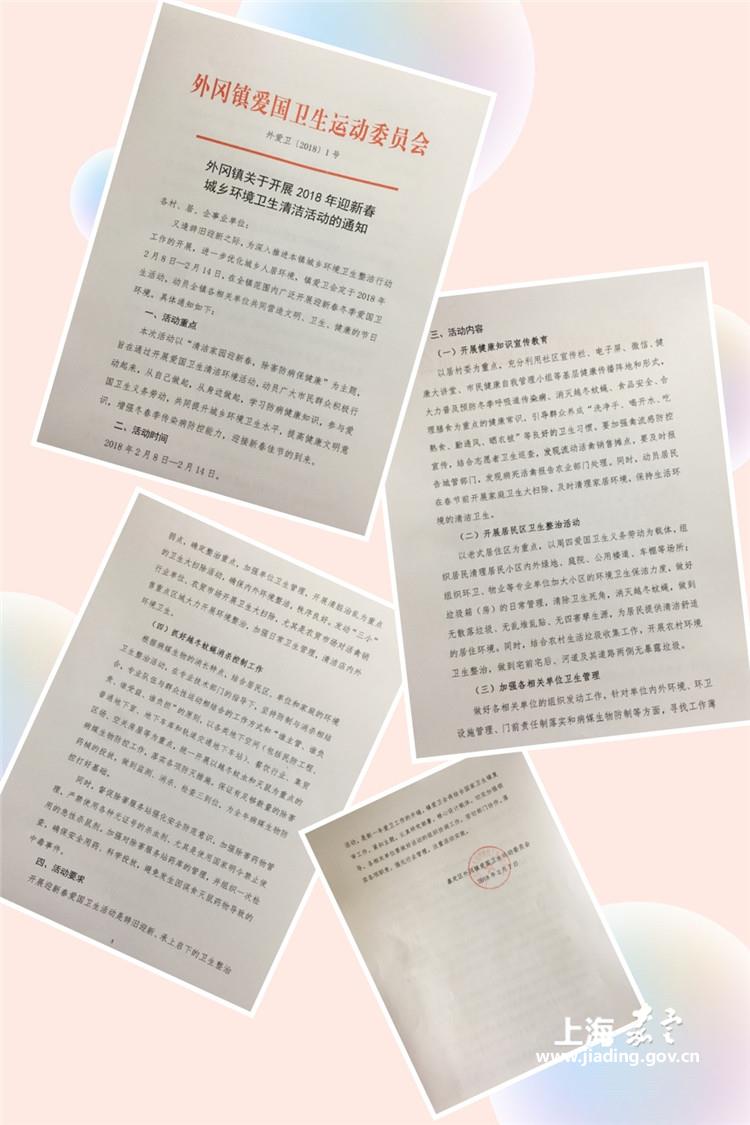 外冈镇爱国卫生运动委员会
外爱卫〔2018〕1号
外冈镇关于开展2018年迎新春
城乡环境卫生清洁活动的通知
各村、居、企事业单位：
又逢辞旧迎新之际，为深入推进本镇城乡环境卫生整洁行动
工作的开展，进一步优化城乡人居环境，镇爱卫会定于2018年
2月8日—2月14日，在全镇范围内广泛开展迎新春冬季爱国卫
生活动，动员全镇各相关单位共同营造文明、卫生、健康的节日
环境。具体通知如下：
一、活动重点
本次活动以“清洁家园迎新春，除害防病保健康”为主题，
旨在通过开展爱国卫生清洁环境活动，动员广大市民群众积极行
动起来，从自己做起，从身边做起，学习防病健康知识，参与爱
国卫生义务劳动，共同提升城乡环境卫生水平，提高健康文明意
识，增强冬春季传染病防控能力，迎接新春佳节的到来。
二、活动时间
2018年2月8日—2月14日。
三、活动内容
（一）开展健康知识宣传教育
以居村委为重点，充分利用社区宣传栏、电子屏、微信、健
康大讲堂、市民健康自我管理小组等基层健康传播阵地和形式，
大力普及预防冬季呼吸道传染病、消灭越冬蚊蝇、食品安全、合
理膳食为重点的健康常识，引导群众养成“洗净手、喝开水、吃
熟食、勤通风、晒衣被”等良好的卫生习惯。要加强禽流感防控
宣传，结合志愿者卫生巡查，发现流动活禽销售摊点，要及时报
告城管部门，发现病死活禽报告农业部门处理。同时，动员居民
在春节前开展家庭卫生大扫除，及时清理家居环境，保持生活环
境的清洁卫生。
（二）开展居民区卫生整治活动
以老式居住区为重点，以周四爱国卫生义务劳动为载体，组
织居民清理居民小区内外绿地、庭院、公用楼道、车棚等场所；
组织环卫、物业等专业单位加大小区的环境卫生保洁力度，做好
垃圾箱（房）的日常管理，清除卫生死角，消灭越冬蚊蝇，做到
无散落垃圾、无乱堆乱贴、无四害孳生源，为居民提供清洁舒适
的居住环境。同时，结合农村生活垃圾收集工作，开展农村环境
卫生整治，做到宅前宅后、河道及其道路两侧无暴露垃圾。
（三）加强各相关单位卫生管理
做好各相关单位的组织发动工作，针对单位内外环境、环卫
设施管理、门前责任制落实和病媒生物防制等方面，寻找工作薄
弱点，确定整治重点，加强单位卫生管理，开展清脏治乱为重点
的卫生大扫除活动，确保内外环境整洁，秩序良好。发动“三小”
行业单位、农贸市场开展卫生大扫除，尤其是农贸市场对活禽销
售重点区域大力开展环境整治，加强日常卫生管理，清洁店内外
环境卫生。
（四）抓好越冬蚊蝇消杀控制工作
根据病媒生物的消长特点，结合居民区、单位和家庭的环境
卫生整治活动，在专业技术部门的指导下，坚持防制与消杀相结
合，专业队伍与群众性运动相结合的工作方式和“谁主管、谁负
责，谁受益、谁负担”的原则，以各类地下空间（包括民防工程、
普通地下室、地下车库和轨道交通地下车站）、餐饮行业、集贸
区场、空关房屋等为重点，统一开展以越冬蚊虫和灭鼠为重点的
病媒生物防控工作，落实各项防灭措施，保证有足够数量的除害
药械的投放，做到监测、消杀、检查三到位，为全年病媒生物防
控打好基础。
同时，督促除害服务站强化安全防范意识，加强除害药物管
理，严禁使用各种无证号的杀虫剂，尤其是使用国家明令禁止使
用的急性杀鼠剂，加强对除害服务站药库的管理，并组织一次检
查，确保安全用药、科学投放，避免发生因误食灭鼠药物导致的
中毒事件。
四、活动要求
开展迎新春爱国卫生活动是辞旧迎新、承上启下的卫生整治
活动，是新一年爱卫工作的开端，镇爱卫会将结合国家卫生镇复
审工作，紧扣主题，认真研究部署，精心设计载体，切实加强领
导。各相关单位要做好活动的组织协调工作，密切部门协作，落
实各项制度，强化行业管理，注重活动实效。
嘉定区外冈镇爱国卫生运动委员会
2018年2月7日
上海嘉定
www.jiading.gov.cn